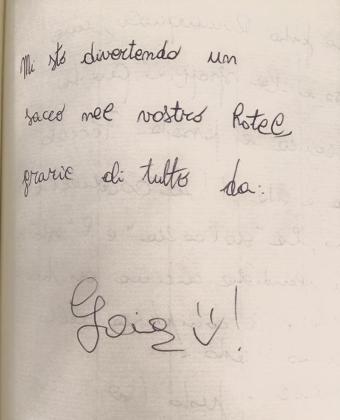 Mi sto divertendo un
sacco nel vostro hotel
grazie di tutto da:
Gaia !